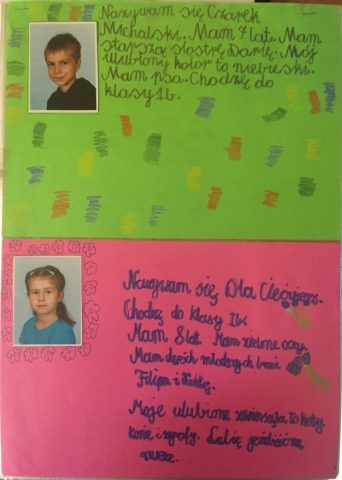 Nazywam się Czarek
Michalski. Mam 7 lat. Mam
starszą siostrę Darię. Mój
ulubiony kolor to niebieski.
Mam psa. Chodzę do
klasy 1b.
Nazywam się Ola
Chodzę do klasy Ib.
Mam 8 lat. Mam zielone oczy.
Mam dwóch młodszych braci
Filipa i
Moje ulubione zwierzęta to koty
konie i żyrafy. Lubię jeździć na